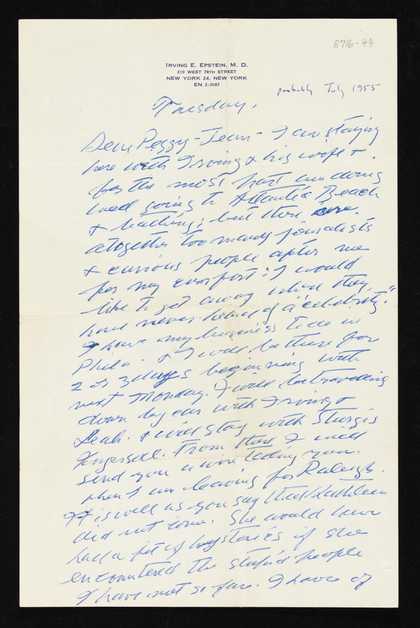 876-44
IRVING E. EPSTEIN, M. D.
NEW YORK 24, NEW YORK
probably July 1955
Tuesday.
Dear Peggy-Jean - I am staying
here with Irving & his wife &
for the most part am doing
well going to Atlantic Beach
& bathing; but there are
altogether too many journalists
& curious people after me
for my comfort! I would
like to get away where they
have never heard of a "celebrity."
I have my business to do in
Phila. & I will be there for
2 or 3 days beginning with
next Monday. I will be travelling
down by car with Irving &
Leah. I will stay with Sturgis
Ingersoll. From there I will
send you a wire telling you
when I am leaving for Raleigh.
It is well as you say that Kathleen
did not come. She would have
had a fit of hysterics if she
encountered the stupid people
I have met so far. I have of